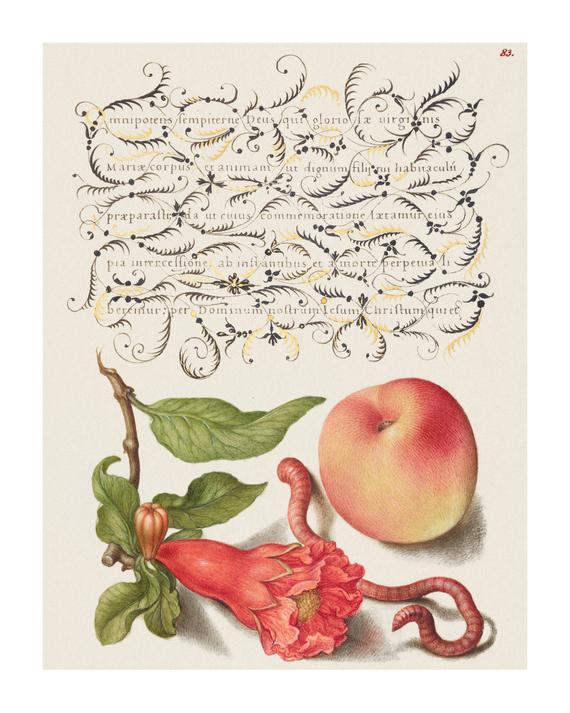 83.
mnipotens sempiterne Deus qui gloriosæ virginis
Mariæ corpus et animam ut dignum filij tui habitaculū
præparasti, da ut cuius commemoratione lætamur eius
pia intercessione, ab instantibus et a morte perpetua li
beremur: per Dominum nostrum Iesum Christum